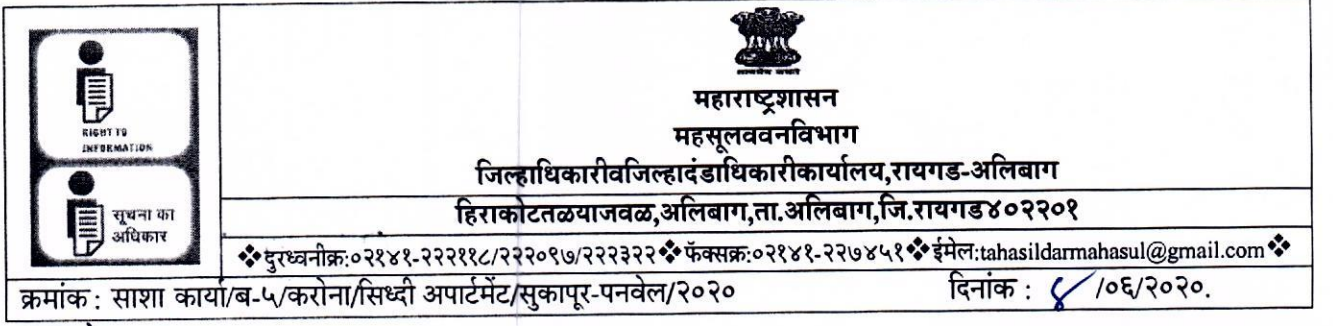 RIGHT TO
INFORMATION
सूचना का
अधिकार
महाराष्ट्रशासन
महसूलववनविभाग
जिल्हाधिकारीवजिल्हादंडाधिकारीकार्यालय,रायगड-अलिबाग
हिराकोटतळयाजवळ,अलिबाग,ता.अलिबाग,जि.रायगड४०२२०१
❖दुरध्वनीक्र:०२१४१-२२२११८/२२२०९७/२२२३२२❖फॅक्सक्र:०२१४१-२२७४५१❖ईमेल:tahasildarmahasul@gmail.com❖
क्रमांक : साशा कार्या/ब-५/करोना/सिध्दी अपार्टमेंट/सुकापूर-पनवेल/२०२० दिनांक : /०६/२०२०.